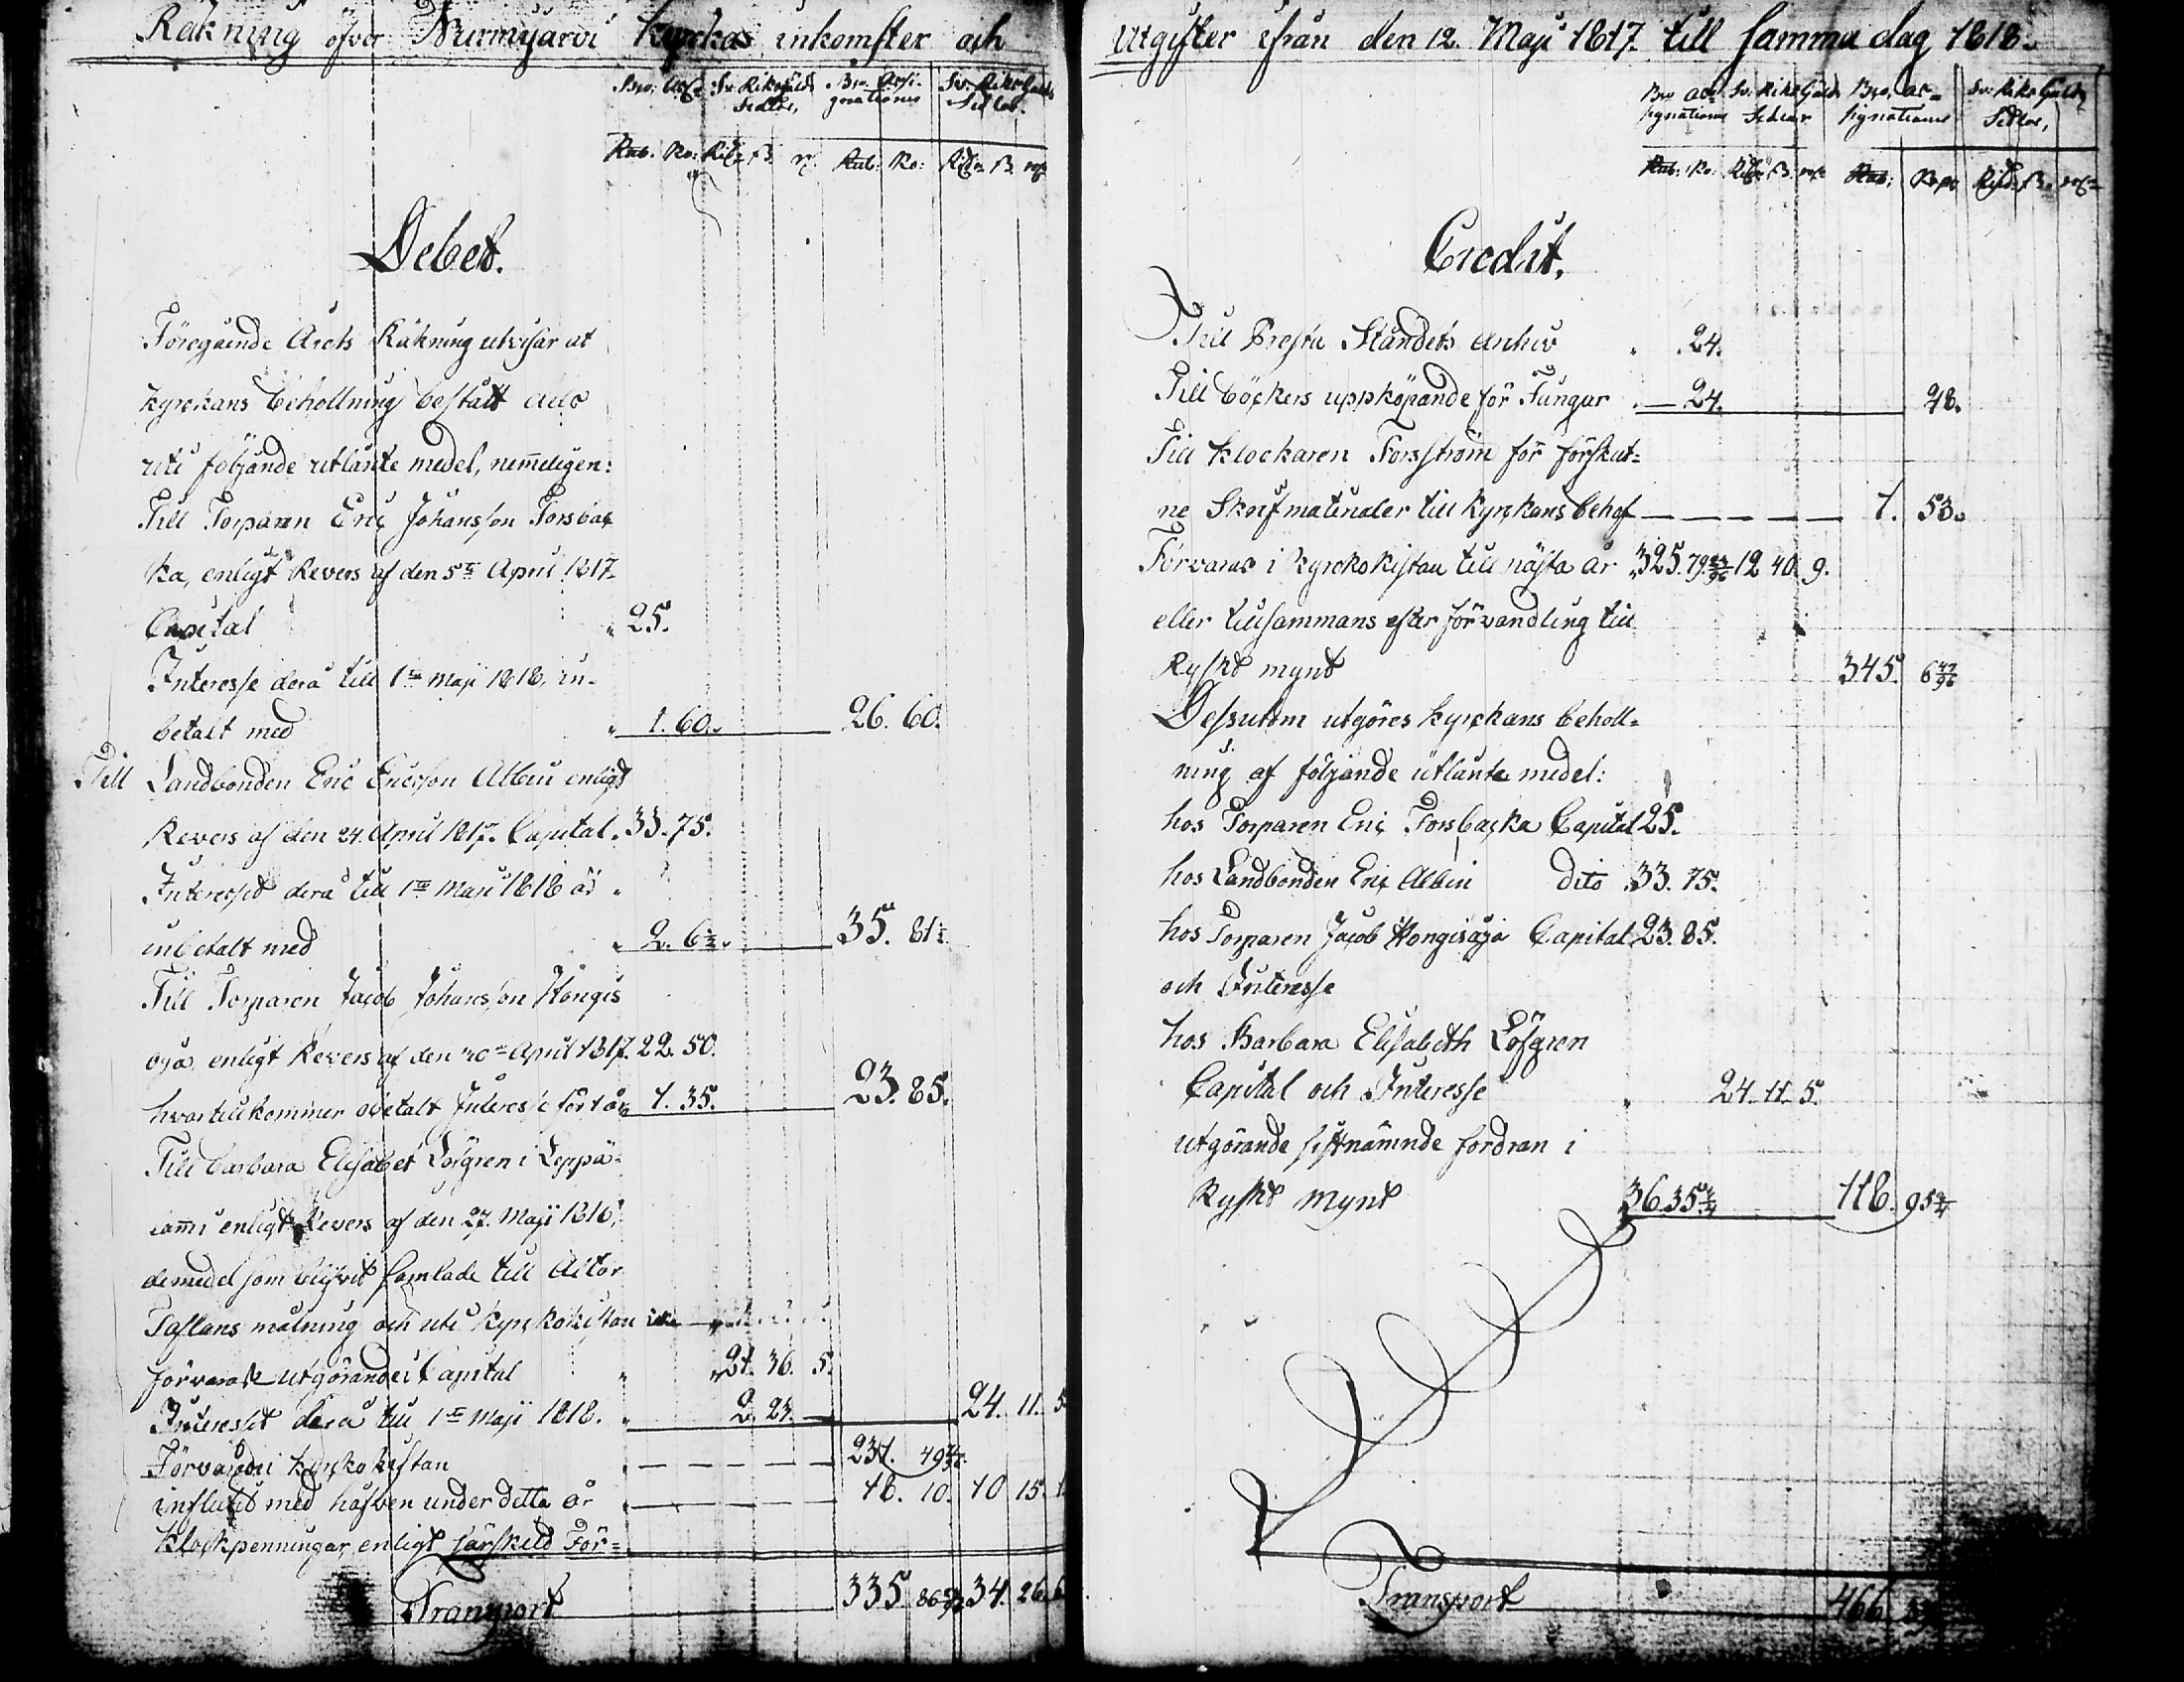 Räkning öfver Nurmijärvi Kyrkas inkomster och
Bco: Sv. Riksgälds Bco. Assi- Sv. Riks Gälds
Sedlar, gnationer Sedlar.
Rub. Ko: Rd: β. Rub: Ko: Rd: β.
Debet.
Föregående Årets Räkning utvisar at
kyrckans behollning bestått dels
uti följande utlånte medel, nemmeligen:
Till Torparen Eric Johansson Forsbac
ka, enligt Revers af den 5te April 1817.
Capital 25.
Interesse derå till 1sta Maji 1818, in-
betalt med 1. 60. 26. 60.
Till Landbonden Eric Ericsson Albin enligt
Revers af den 24. April 1817. Capital. 33. 75.
Interesset derå till 1ste Maji 1818 är
inbetalt med 2. 6½. 35. 81½.
Till Torparen Jacob Johansson Hongis
oja enligt Revers af den April 1817. 22. 50.
hvartill kommer obetalt Interesse för 1 år 1. 35. 23. 85.
Till Barbara Elisabet Löfgren i Leppä-
lammi enligt Revers af den 27. Maji 1816,
de medel som blifvit samlade till Altar
Taflans målning och uti kyrkokistan
förvarade utgörande i Capital 21. 36. 5.
Interesset derå till 1ste Maji 1818. 2. 23. 24. 11. 5
Förvarade i kyrkokistan 231. 49
influtit med håfven under detta år 18. 10. 10 15.
Klockpenningar enligt särskild För=
Transport 335. 86 34. 26. 6
Utgifter ifrån den 12. Maji 1817. till samma dag 1818.
Bco Assi- Sv. Riks Gälds Bco, as- Sv. Riks Gälds
signationer Sedlar signationer Sedlar,
Rub: Ko: Rd: β. Rub: Kop: Rd: β.
Credit.
Till Presta Ståndets Archiv 24.
Till böckers uppköpande för Fångar 24. 48.
Till Klockaren Forsström för förskut=
ne Skrifmaterialer till Kyrkans behof 1. 53.
Förvaras i Kyrckokistan till nästa år 325. 79. 12 40. 9.
eller tillsammans efter förvandling till
Ryskt mynt 345. 6
Dessutom utgöres Kyrckans beholl=
ning af följande utlånta medel:
hos Torparen Eric Forsbacka Capital 25.
hos Landbonden Eric Albin dito 33. 75.
hos Torparen Jacob Hongisoja Capital 23. 85.
och Interesse
hos Barbara Elisabeth Löfgren
Capital och Interesse 24. 11. 5.
utgörande sistnämnde fordran i
Ryskt Mynt 36 35¾ 118. 95¾
Transport 466